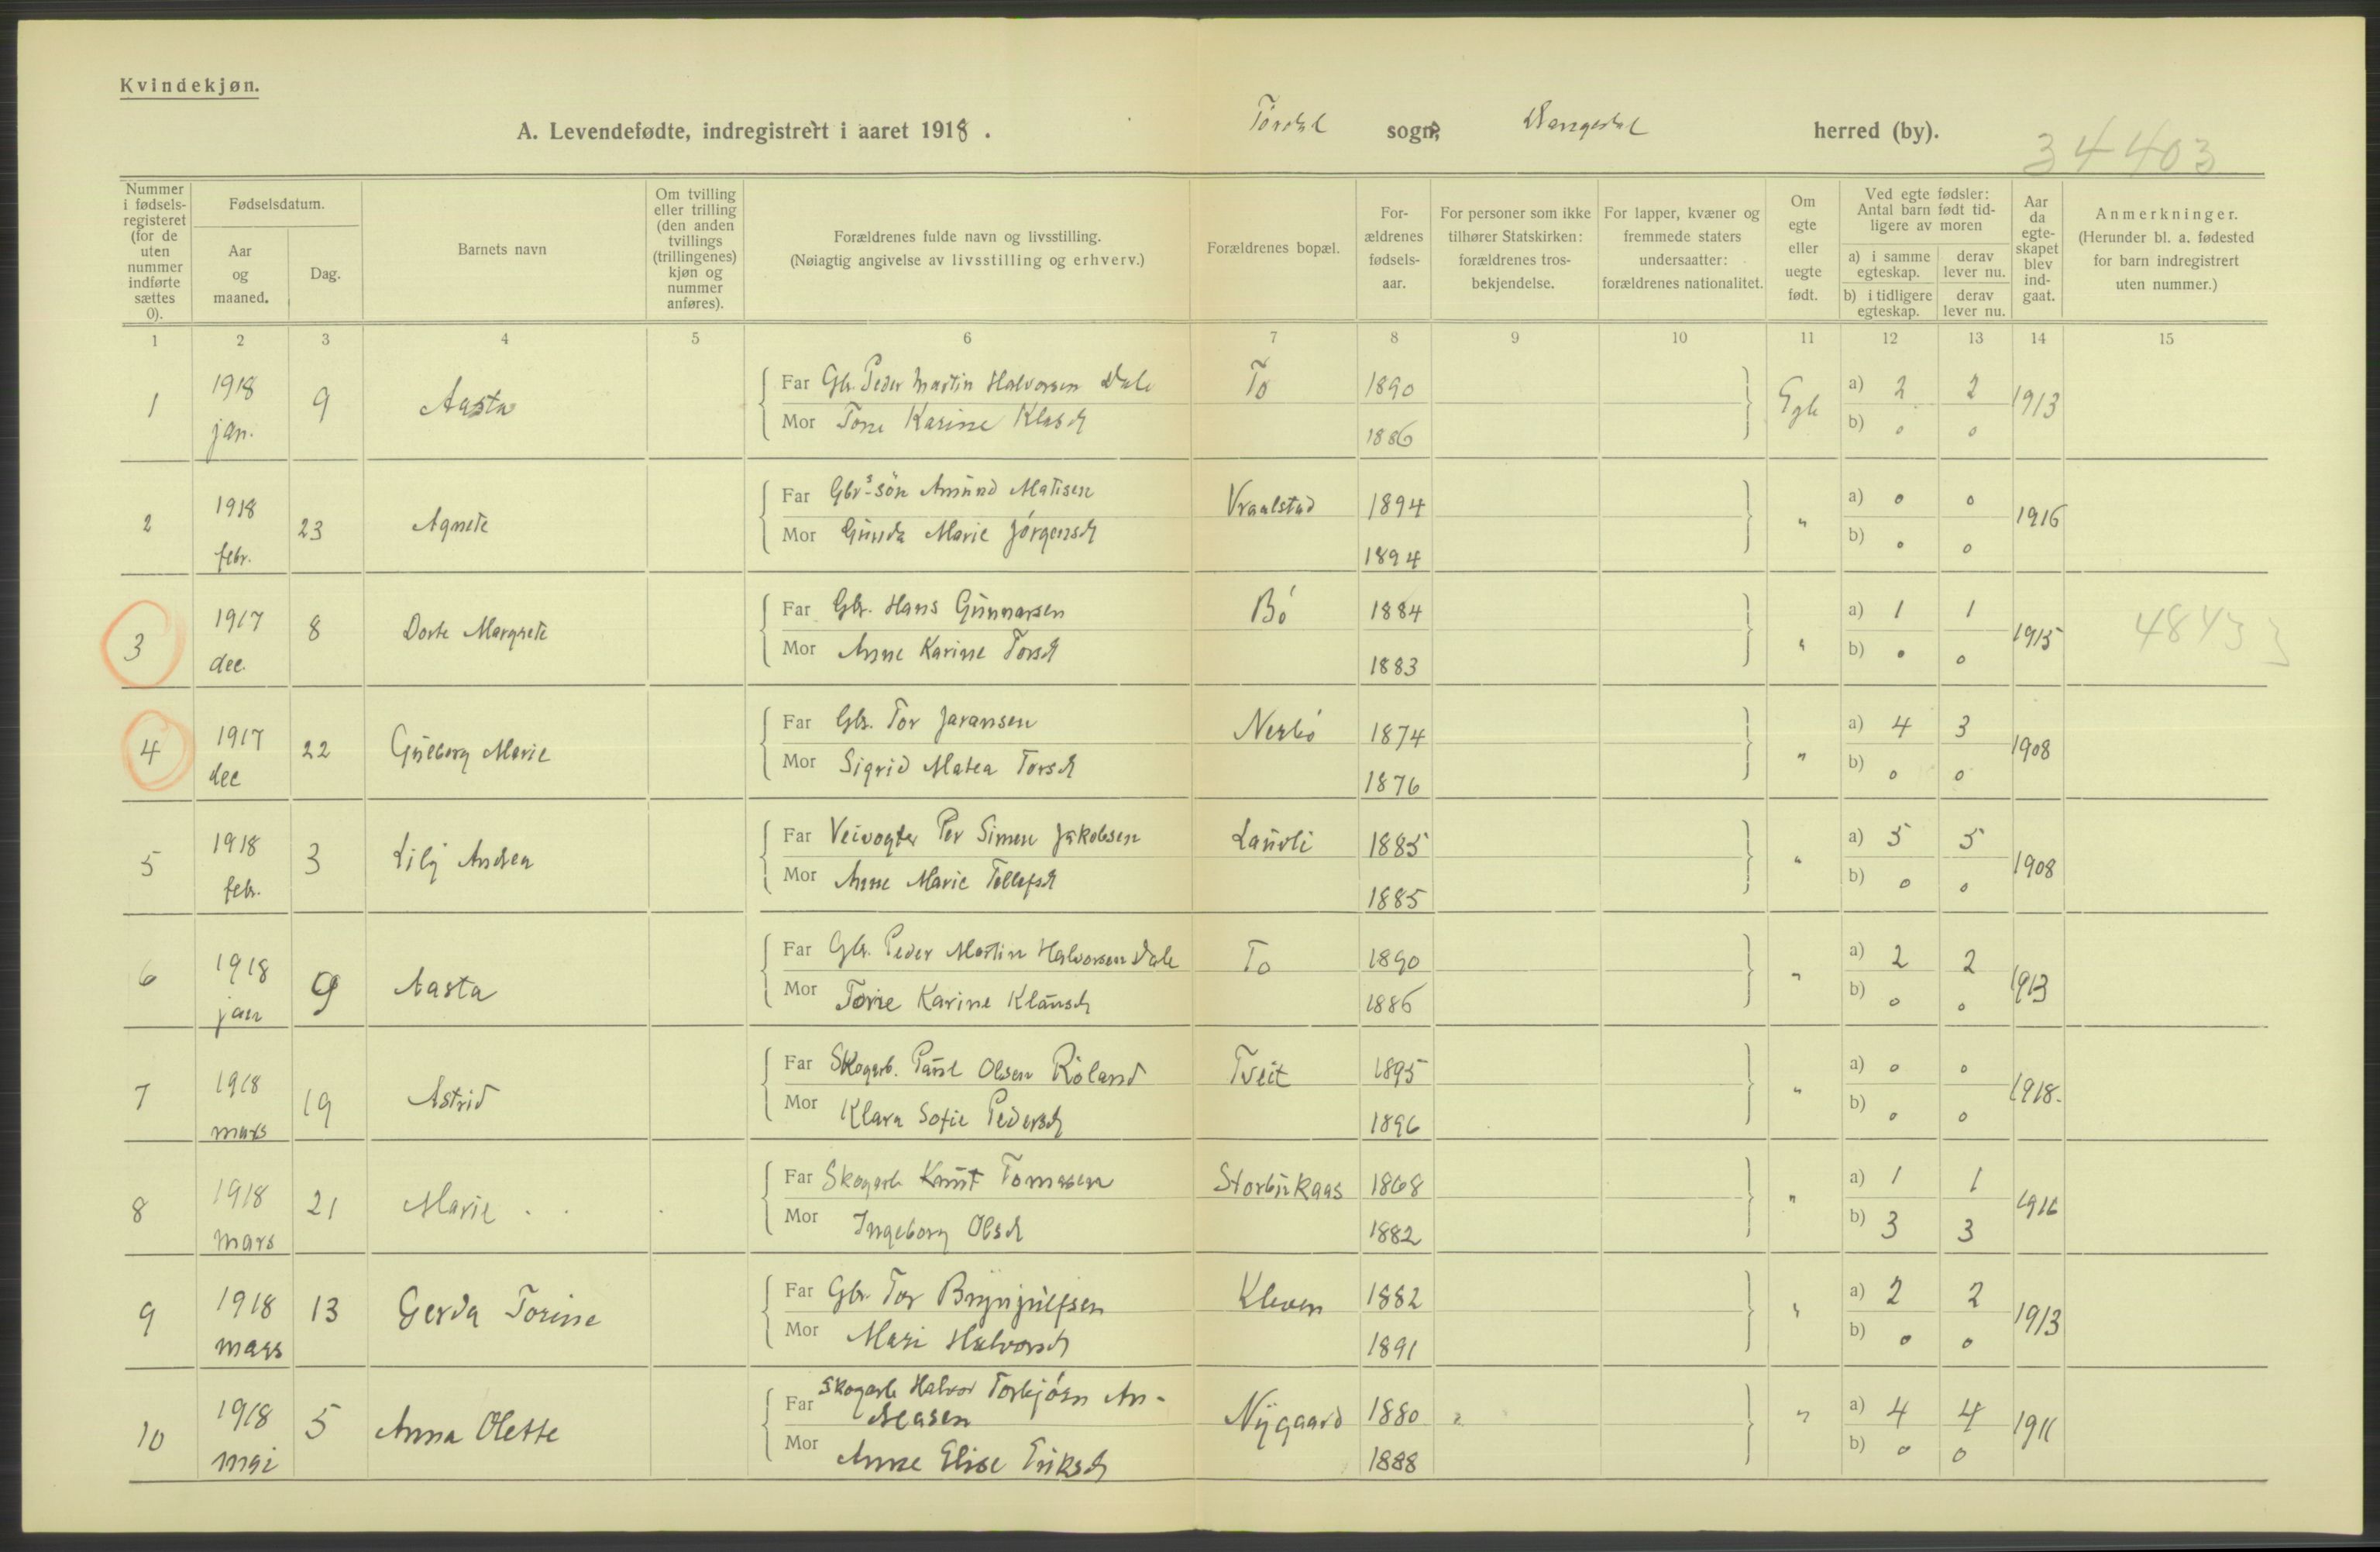 Kvindekjøn.
A. Levendefødte, indregistrert i aaret 1918. Tørdal sogn, Drangedal herred (by).
34403
Nummer i fødsels-registeret (for de uten nummer indførte sættes 0).
Fødselsdatum.
Aar og maaned.
Dag.
Barnets navn
Om tvilling eller trilling (den anden tvillings (trillingenes) kjøn og nummer anføres).
Forældrenes fulde navn og livsstilling.
(Nøiagtig angivelse av livsstilling og erhverv.)
Forældrenes bopæl.
For-ældrenes fødsels-aar.
For personer som ikke tilhører Statskirken: forældrenes tros-bekjendelse.
For lapper, kvæner og fremmede staters undersaatter: forældrenes nationalitet.
Om egte eller uegte født.
Ved egte fødsler: Antal barn født tid-ligere av moren
a) i samme egteskap. derav lever nu.
b) i tidligere egteskap. derav lever nu.
Aar da egte-skapet blev ind-gaat.
Anmerkninger.
(Herunder bl. a. fødested for barn indregistrert uten nummer.)
1 2 3 4 5 6 7 8 9 10 11 12 13 14 15
1 1918 jan. 9 Aasta
Far Gbr. Peder Martin Halvorsen Dale To 1890 Egte a) 2 2 1913
Mor Tone Karine Klasd 1886 b) 0 0
2 1918 febr. 23 Agnete
Far Gbr.s-søn Amund Matisen Vraalstad 1894 " a) 0 0 1916
Mor Gunda Marie Jørgensd 1894 b) 0 0
3 1917 dec. 8 Dorte Margrete
Far Gbr. Hans Gunnarsen Bø 1884 " a) 1 1 1915
Mor Anne Karine Torsd 1883 b) 0 0
4 1917 dec 22 Gueborg Marie
Far Gbr. Tor Jaransen Nerbø 1874 " a) 4 3 1908
Mor Sigrid Matea Torsd 1876 b) 0 0
5 1918 febr. 3 Lily Andrea
Far Veivogter Per Simen Jakobsen Lauvli 1885 " a) 5 5 1908
Mor Anne Marie Tellefsd 1885 b) 0 0
6 1918 jan 9 Aasta
Far Gbr. Peder Martin Halvorsen Dale To 1890 " a) 2 2 1913
Mor Tone Karine Klausd 1886 b) 0 0
7 1918 mars 19 Astrid
Far Skogarb. Paul Olsen Røland Tveit 1895 " a) 0 0 1918.
Mor Klara Sofie Pedersd 1896 b) 0 0
8 1918 mars 21 Marie
Far Skogarb Knut Tomasen Storbukaas 1868 " a) 1 1 1916
Mor Ingeborg Olsd 1882 b) 3 3
9 1918 mars 13 Gerda Torine
Far Gbr. Tor Brynjulfsen Kleven 1882 " a) 2 2 1913
Mor Mari Halvorsd 1891 b) 0 0
10 1918 mai 5 Anna Olette
Far Skogarb Halvor Torbjørn An-
dreasen Nygaard 1880 " a) 4 4 1911
Mor Anne Elise Eriksd 1888 b) 0 0